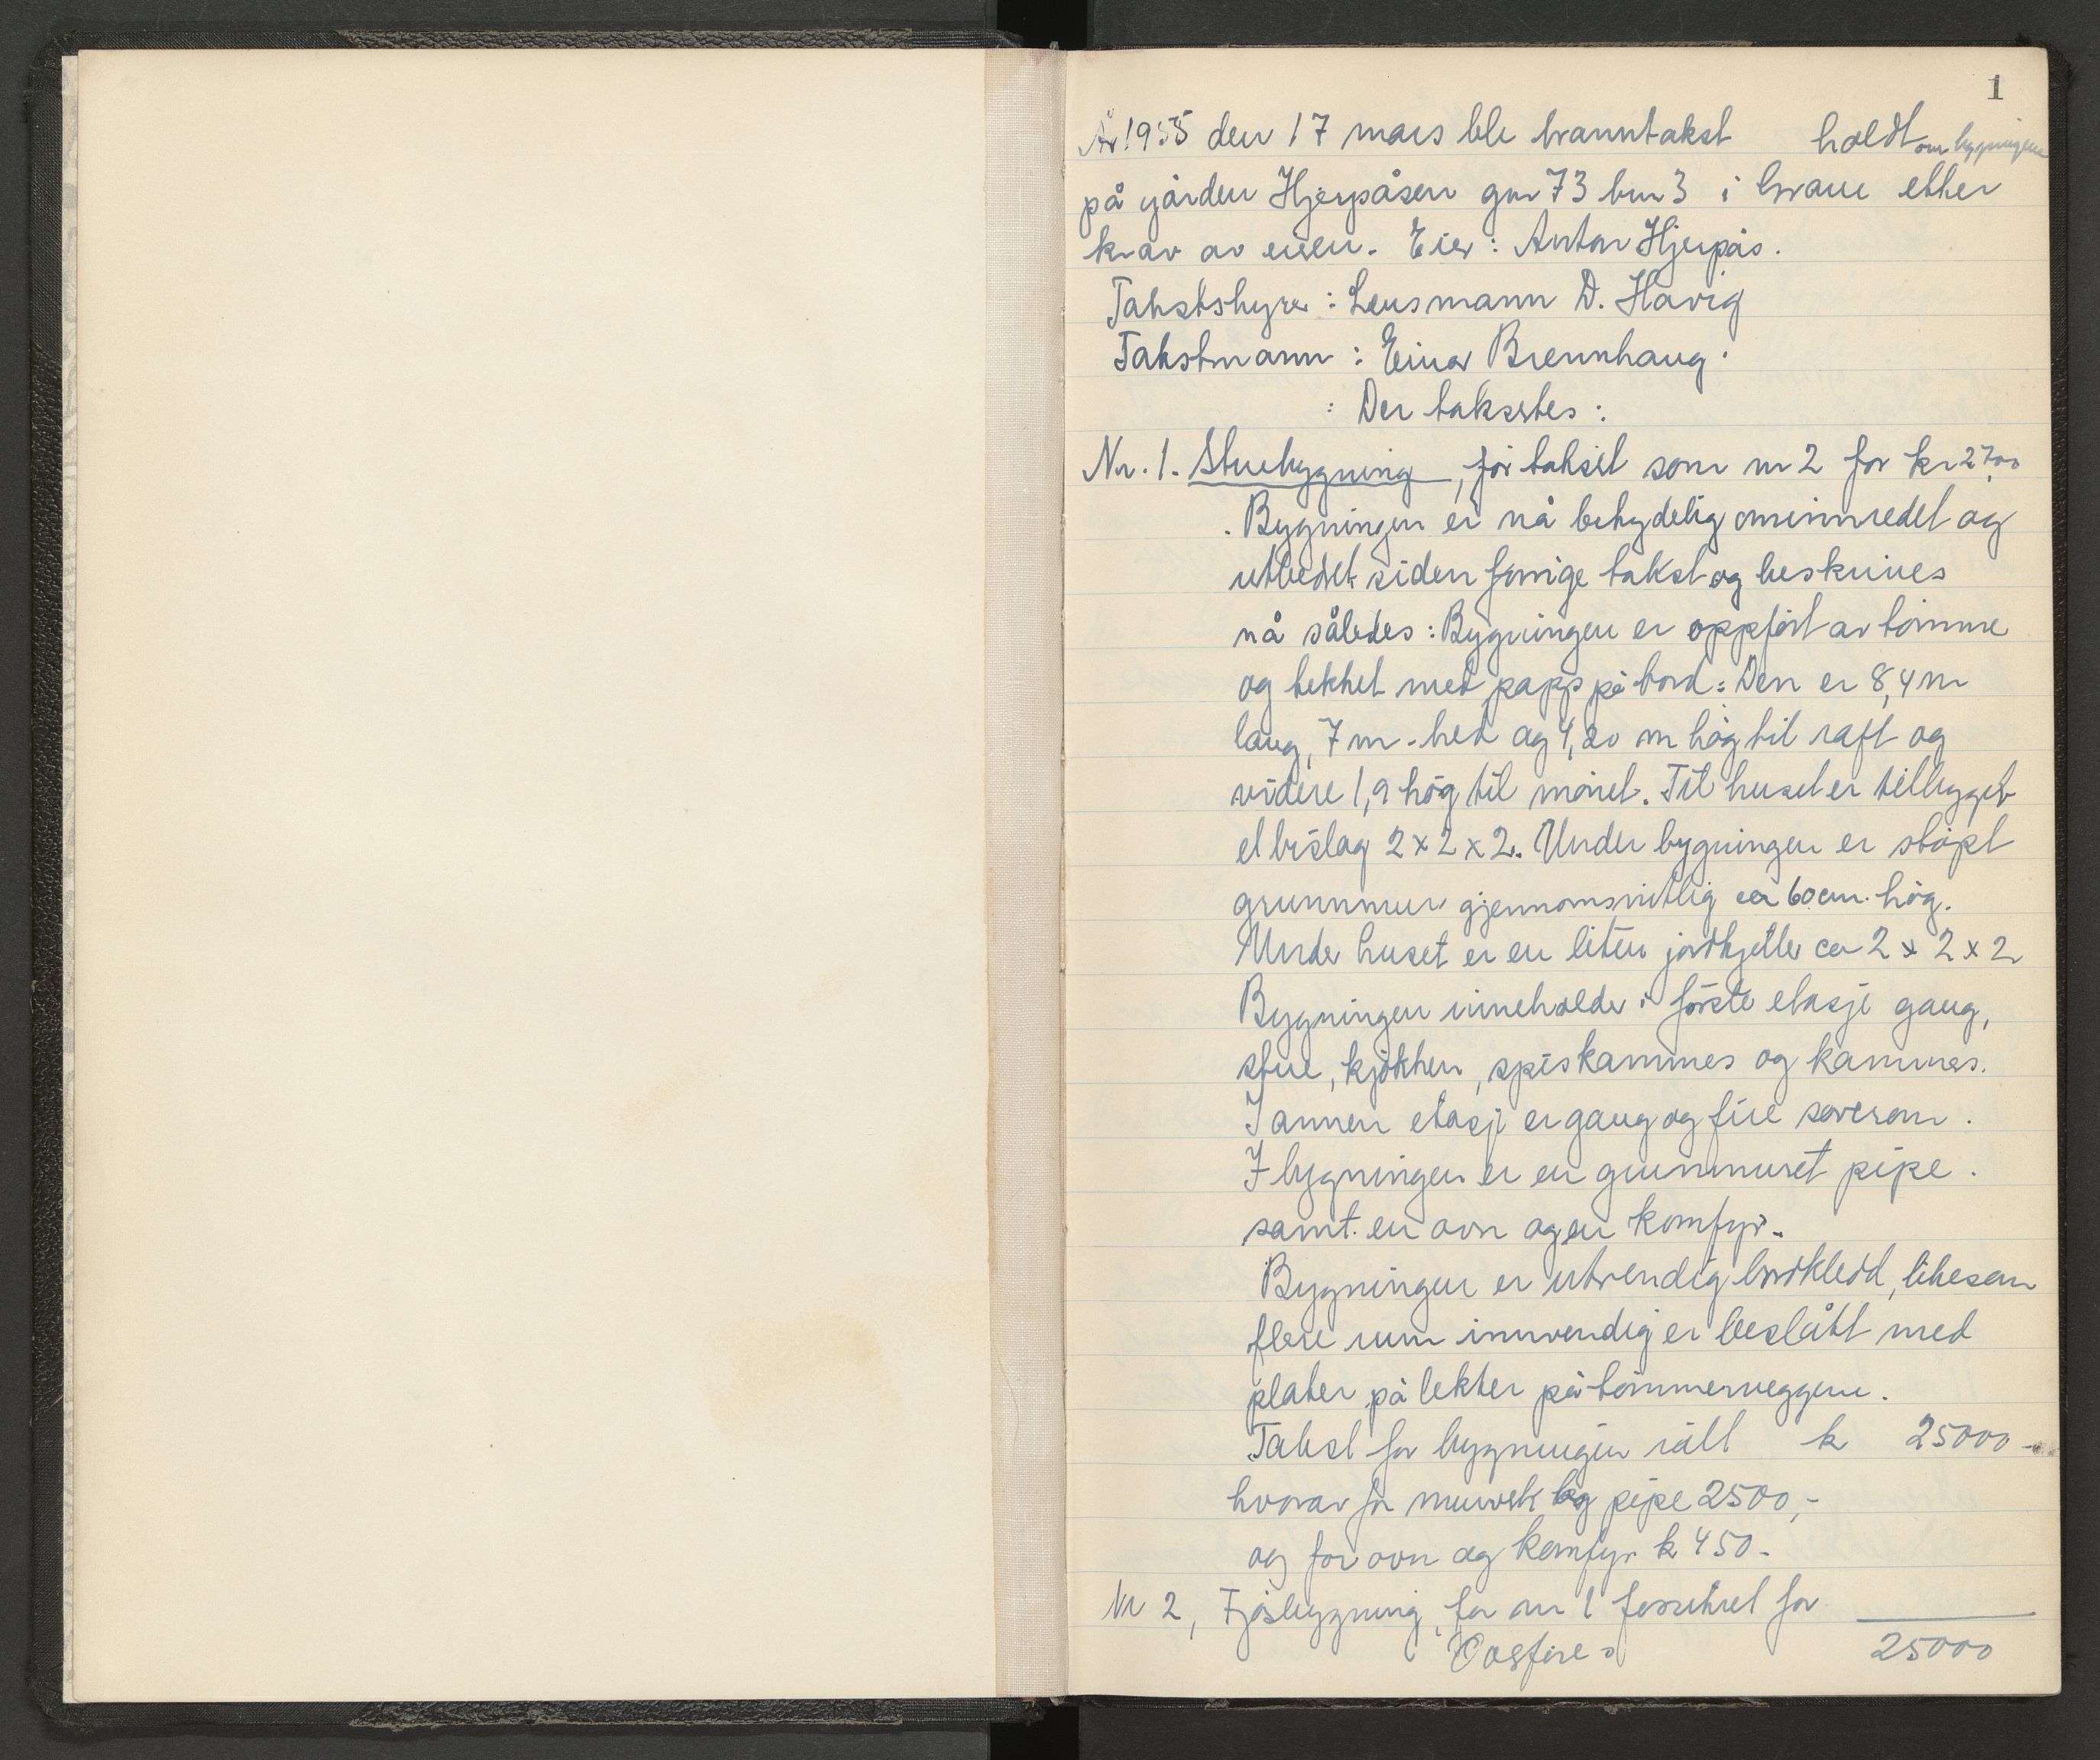 1
År 1955 den 17 mars ble branntakst holdt over bygningene
på gården Hjerpåsen gnr 73 bnr 3 i Grane etter
krav av eieren. Eier: Anton Hjerpås.
Takstshyre: Lensmann D. Havig
Takstmann: Einar Brennhaug.
: Der taksertes:
Nr. 1. Stuebygning, før taksert som nr 2 for kr 2700
Bygningen er nå betydelig ominnredet og
utbedret siden forrige takst og beskrives
nå således: Bygningen er oppført av tømmer
og tekket med papp på bord: Den er 8,4 m
lang, 7 m bred og 4,20 m høg til raft og
videre 1,9 høg til mønet. Til huset er tilbygget
et bislag 2 x 2 x 2. Under bygningen er støpt
grunnmur gjennomsnitlig ca 60 cm. høg.
Under huset er en liten jordkjeller ca 2 x 2 x 2
Bygningen inneholder i første etasje gang,
stue, kjøkken, spiskammers og kammers.
I annen etasje er gang og fire soverom.
I bygningen er en grunnmuret pipe.
samt. en ovn og en komfyr.
Bygningen er utvendig bordkledd, likesom
flere rum innvendig er beslått med
plater på lekter på tømmerveggene.
Takst for bygningen ialt k 25000-
hvorav for murverk og pipe 2500,-
og for ovn og komfyr k 450-
Nr 2, Fjøsbygning, før nr 1 forsikret for
Overføres 25000